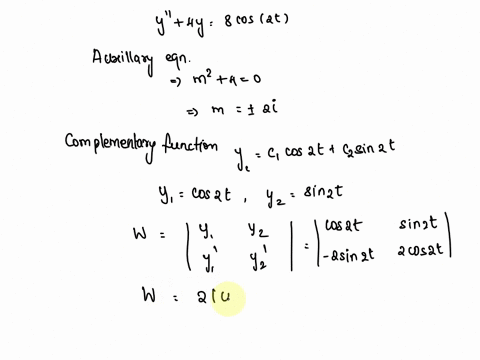 y'' + 4y = 8 cos(2t)
Auxillary eqn.
⇒ m² + 4 = 0
⇒ m = ± 2i
Complementary function y_c = c₁ cos 2t + c₂ sin 2t
y₁ = cos 2t , y₂ = sin 2t
W = | y₁ y₂ | = | cos 2t sin 2t |
| y₁' y₂' | | -2 sin 2t 2 cos 2t |
W = 2(